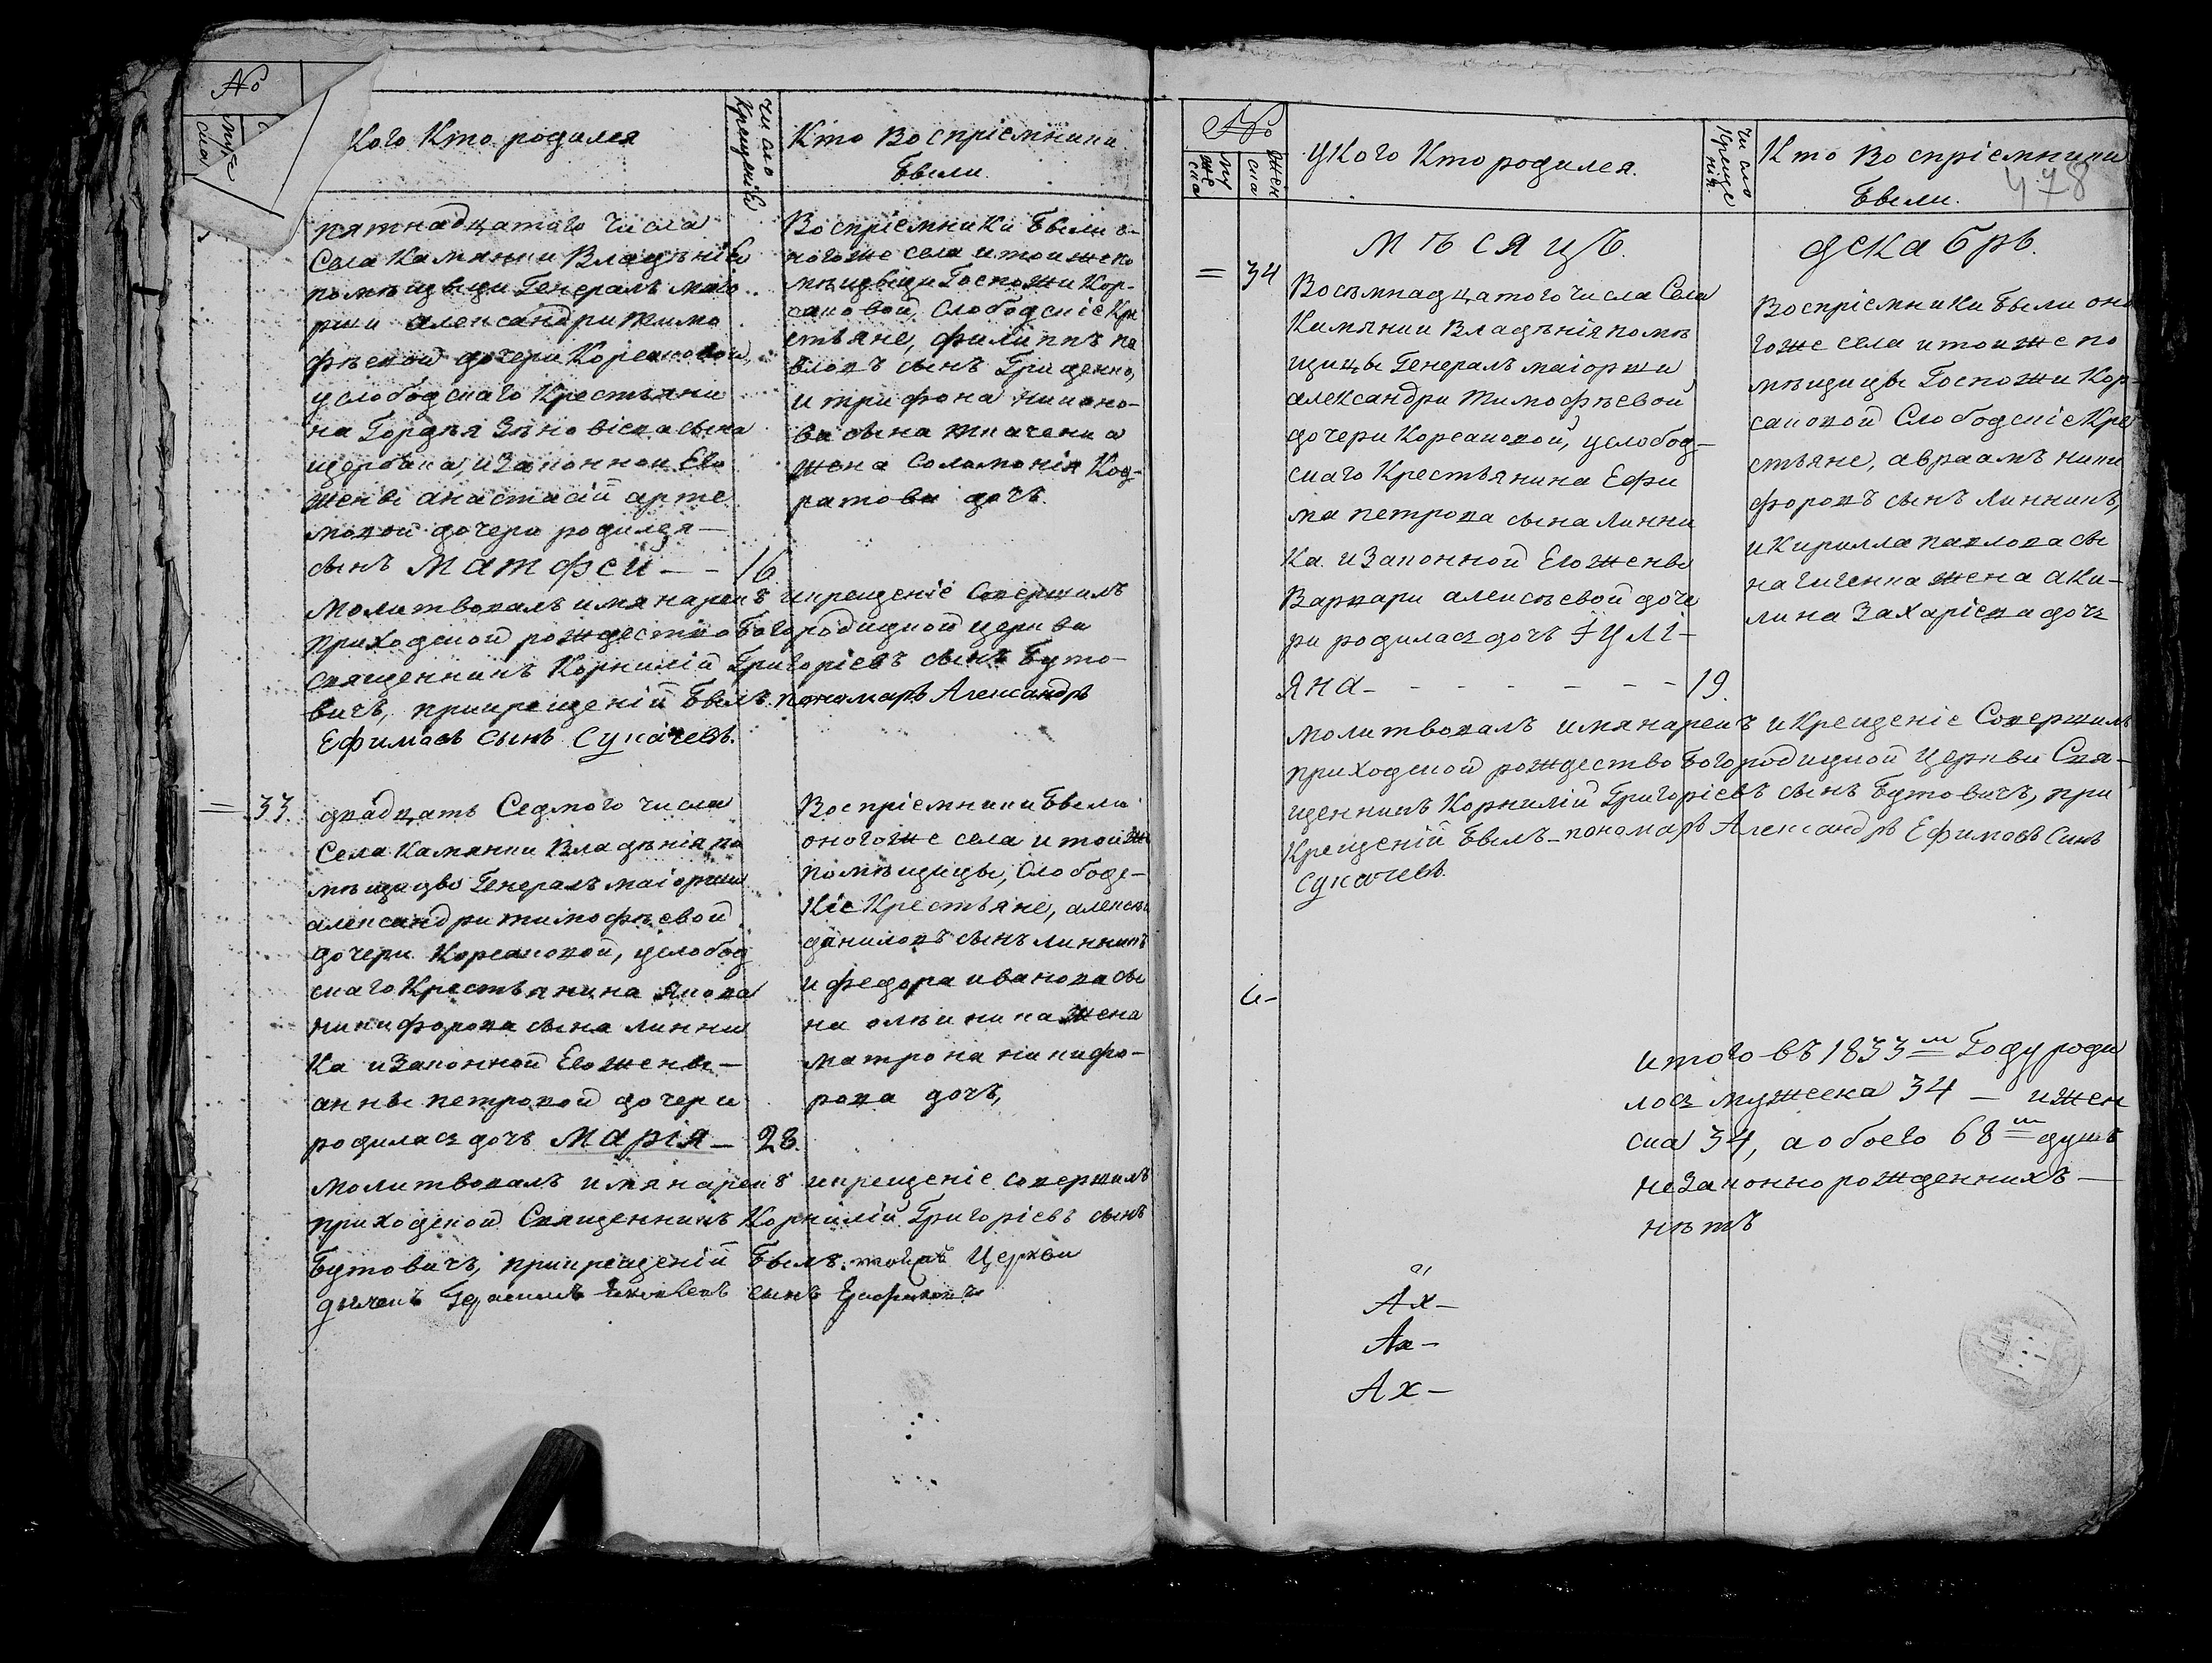 №
муж
ска
Кого Кто родился
число
Крещенія
Кто Воспріемники
Были.
пятнадцатого Числа
Села Камянки Владѣнія
помѣщици Генералъ маіо
рши александри тимо
фѣевой дочери Корсаковой,
услободскаго Крестьяни
на Гордѣя Зѣновіева сына
щербака, иЗаконной Его
жены анастасій арте
мовой дочери родился —
сынъ Матфей — — 16
Воспріемники Были о-
ногоже села итоиже по
мѣщици Госпожи Кор-
саковой, Слободскіе Кре
стьяне, филиппъ па
вловъ сынъ Гриценко,
и трифона никоно-
ва сына ткаченка
жена Соломонія Код-
ратова дочь.
Молитвовалъ имянарекъ икрещеніе Совершилъ
приходской рождество Богородицкой церкви
священникъ Корнилій Григоріевъ сынъ Буто-
вичъ, прикрещеній Былъ. пономарь Александръ
Ефимовъ сынъ Сукачевъ.
= 33.
двадцать Седмого числа
Села Камянки Владѣнія по
мѣщицы Генералъ маіорши
александри тимофѣевой
дочери Корсаковой, услобод
скаго Крестьянина Якова
никифорова сына линни
Ка иЗаконной Его жены —
анны петровой дочери
родилась дочь Марія — 28.
Воспріемники Были
оногоже села и тоиже
помѣщицы, Слободс-
Кіе Крестьяне, алексѣй
даниловъ сынъ линникъ
и федора иванова сы
на олѣйника жена
матрона никифо-
рова дочь,
молитвовалъ имянарекъ икрещеніе совершилъ
приходской Священникъ Корнилій Григоріевъ сынъ
Бутовичъ, прикрещеній Былъ. тойже Церкви
дьячекъ Герасимъ сынъ
№
му
же
ска
жен
ска
уКого Кто родился.
число
Креще
нія.
Кто Воспріемники
Были.
478
мѣсяцъ.
декабрь.
= 34
Восъмнадцатого числа Села
Камянки Владѣнія помѣ
щицы Генералъ маіорши
александри Тимофѣевой
дочери Корсаковой, услобод-
скаго Крестьянина Ефи
ма петрова сына линни
Ка иЗаконной Его жены
Варвари алексѣевой доче
ри родилась дочь Іулі-
яна — — — — — — — 19.
Воспріемники Были оно
гоже села итоиже по
мѣщицы Госпожи Кор-
саковой Слободскіе Кре
стьяне, авраамъ ники
форовъ сынъ линникъ,
и Кирилла павлова сы
на жена аки-
лина Захаріева дочь
молитвовалъ имянарекъ иКрещеніе Совершилъ
приходской рождество Богородицкой Церкви Свя-
щенникъ Корнилій Григоріевъ сынъ Бутовичъ, при
Крещеній Былъ — пономарь Александръ Ефимовъ Сынъ
Сукачевъ.
итого въ 1833м Году роди
лось мужеска 34 — ижен
ска 34, а обоего 68м душъ
неЗаконно рожденнихъ —
нѣтъ